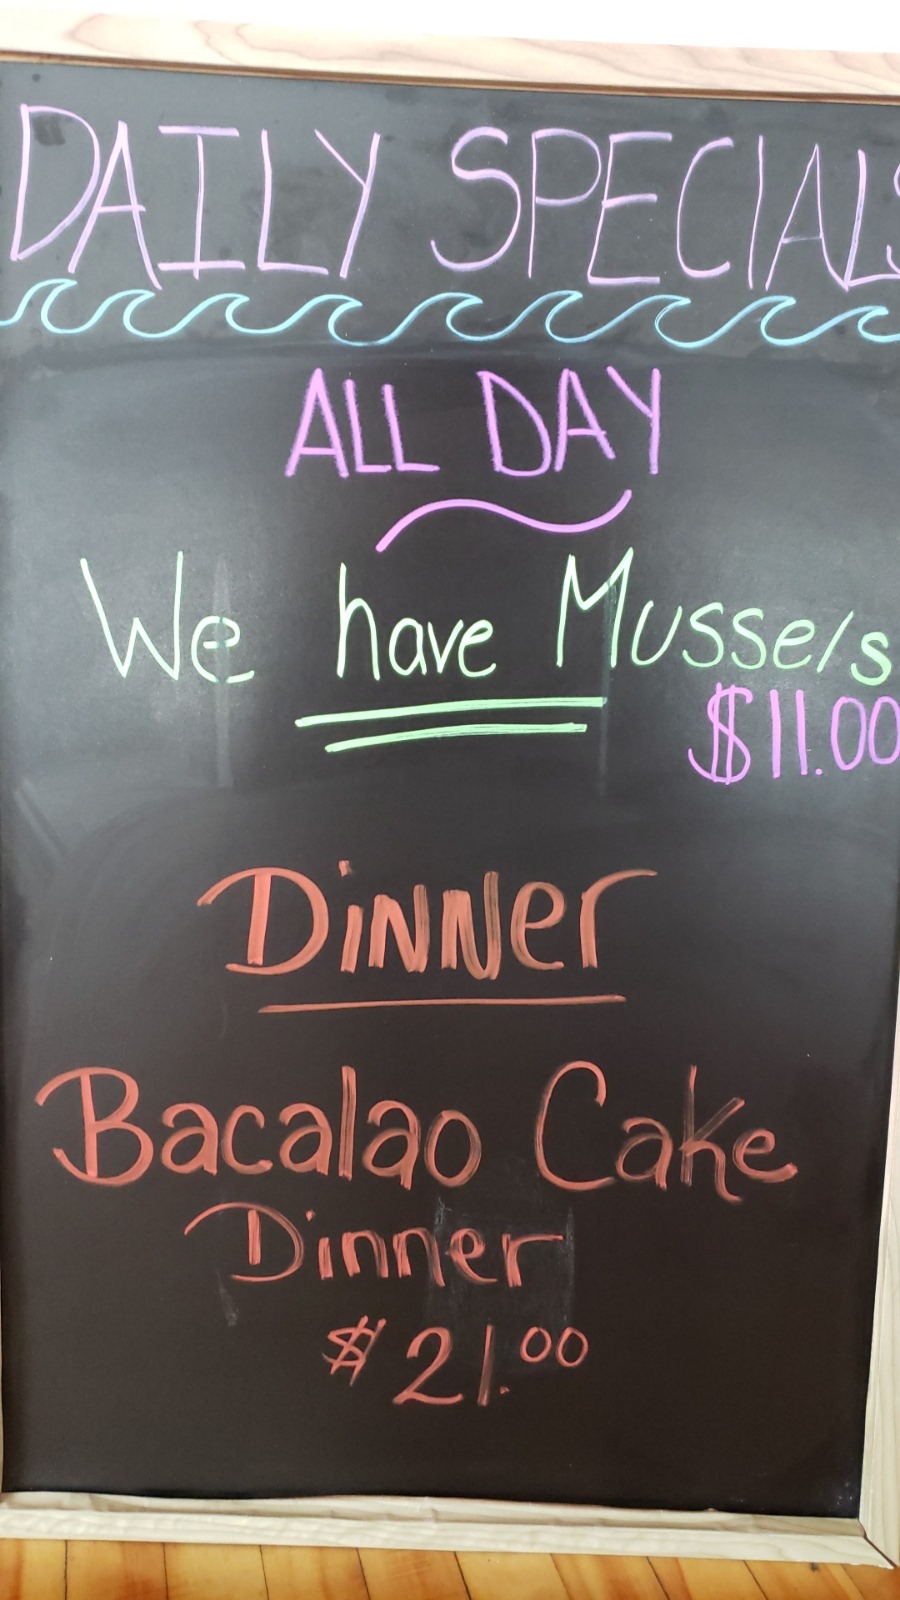 DAILY SPECIALS
ALL DAY
We have Mussels
$11.00
Dinner
Bacalao Cake
Dinner
$21.00